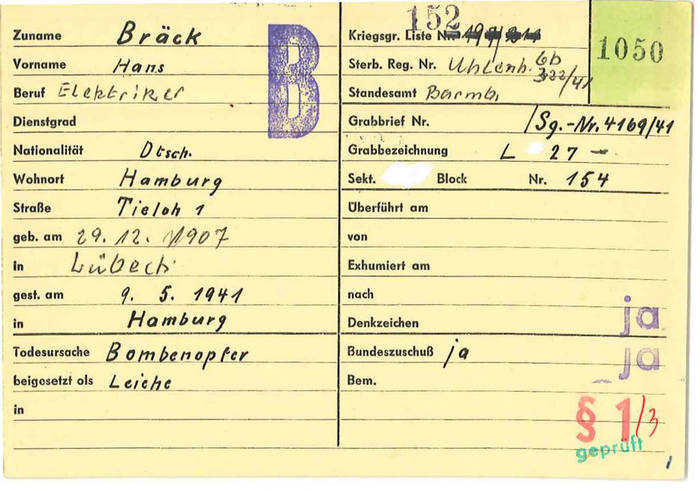 Zuname Bräck
Vorname Hans
Beruf Elektriker
Dienstgrad
Nationalität Dtsch.
Wohnort Hamburg
Straße Tieloh 1
geb. am 29.12.1907
in Lübeck
gest. am 9.5.1941
in Hamburg
Todesursache Bombenopfer
beigesetzt als Leiche
in
B
152
Kriegsgr. Liste Nr.
1050
Sterb. Reg. Nr. Uhlenh. 6b 322/41
Standesamt Barmb.
Grabbrief Nr. /Sg.-Nr. 4169/41
Grabbezeichnung L 27 –
Sekt. Block Nr. 154
Überführt am
von
Exhumiert am
nach
Denkzeichen ja
Bundeszuschuß ja ja
Bem.
§ 1/3
geprüft